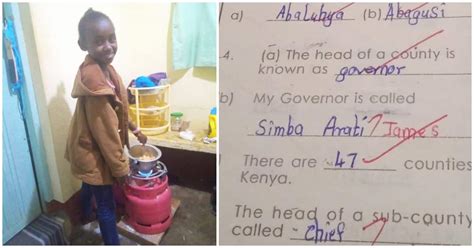 a) Abaluhya (b) Abagusi
4. (a) The head of a county is
known as governor
b) My Governor is called
Simba Arati James
There are 47 counties
Kenya.
The head of a sub-county
called chief